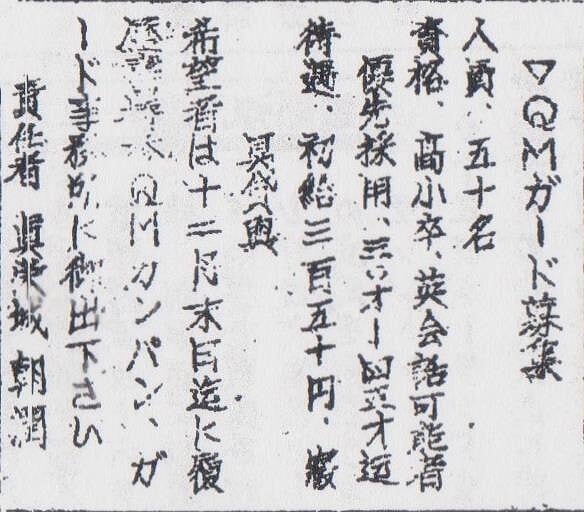 ▽QMガード募集
人員、五十名
資格、高小卒、英会話可能者
優先採用、三〇才ー四五才迄
待遇、初給三百五十円、被
具貸与
希望者は十二月末日迄に履
歴書 QMカンパン、ガ
ード事務所に御出下さい
責任者 真栄城 朝潤